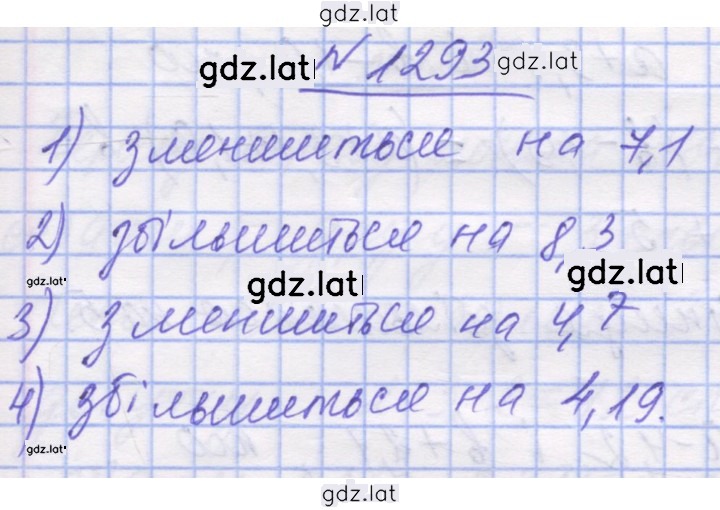 gdz.lat
№ 1293
gdz.lat
gdz.lat
1) зменшиться на 7,1
2) збільшиться на 8,3
gdz.lat
gdz.lat
gdz.lat
3) зменшиться на 4,7
4) збільшиться на 4,19.
gdz.lat
gdz.lat